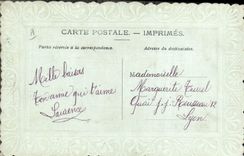 CARTE POSTALE. — IMPRIMÉS.
Partie réservée à la correspondance.
Adresse du destinataire.
Mille baisers
Ton amie qui t'aime
Laurence
Mademoiselle
Marguerite
Quai J.J. Rousseau 12
Lyon